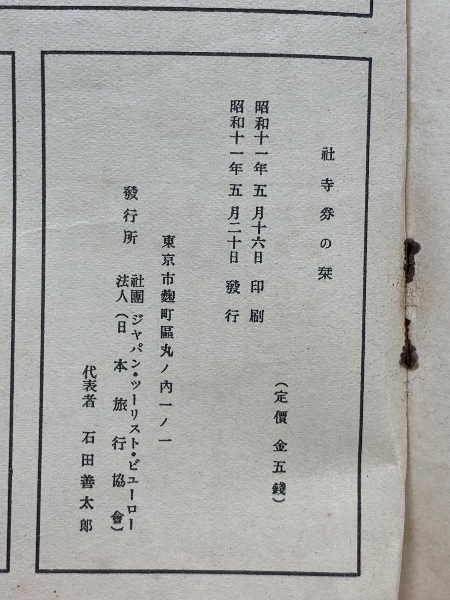 社寺券の栞
(定價 金五錢)
昭和十一年五月十六日 印刷
昭和十一年五月二十日 發行
東京市麴町區丸ノ內一ノ一
發行所 社團法人 ジャパン・ツーリスト・ビューロー
(日本旅行協會)
代表者 石田善太郞